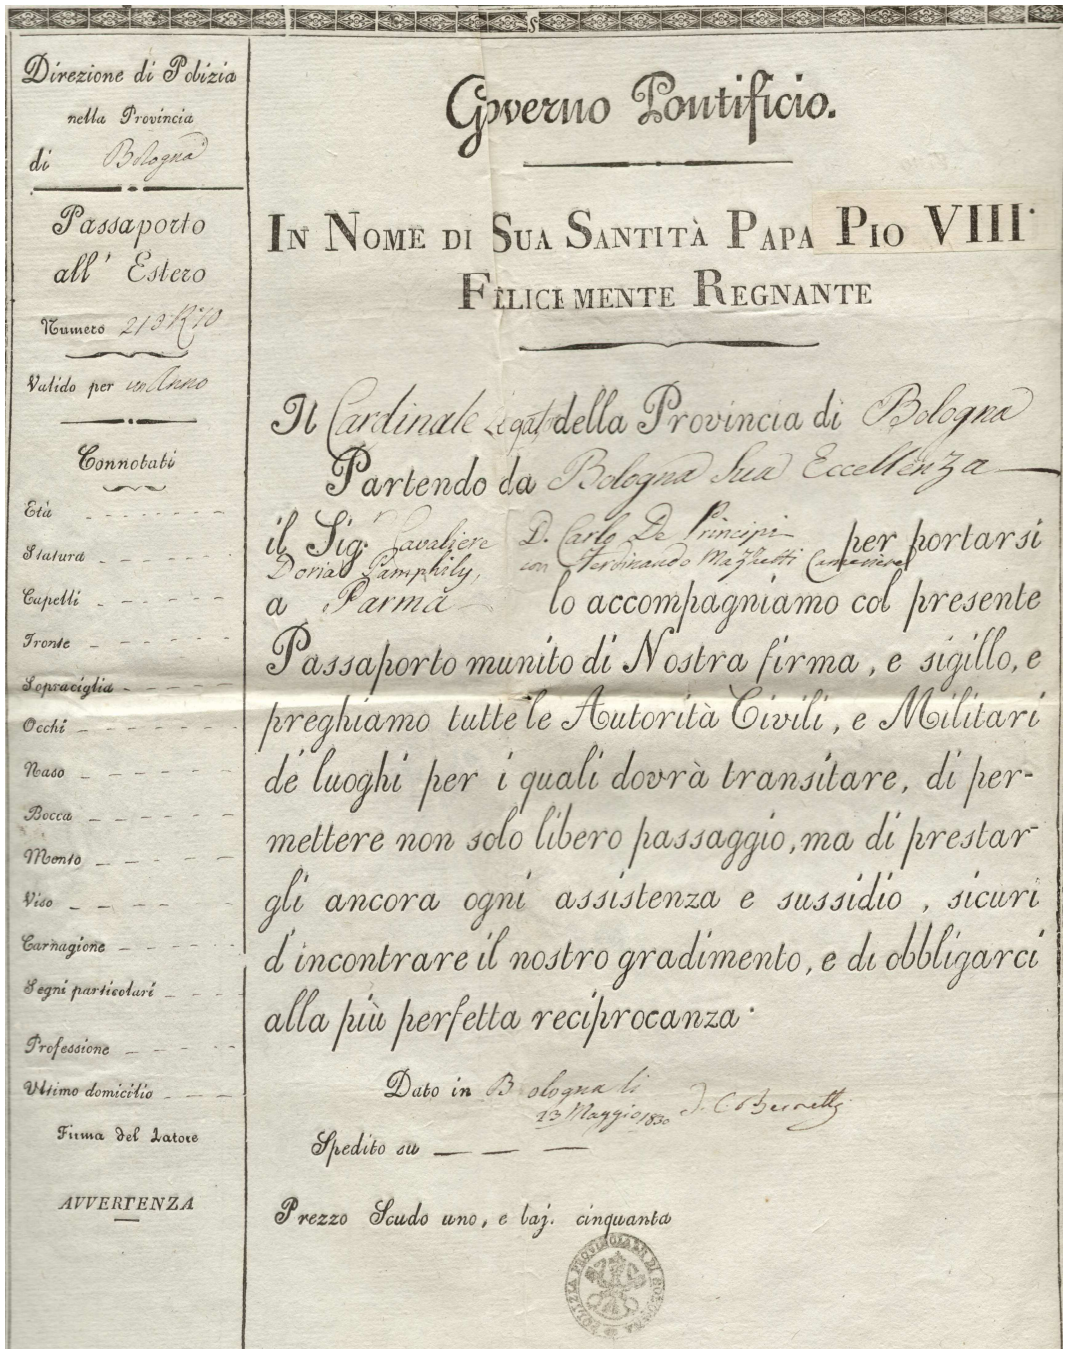 Direzione di Polizia
nella Provincia
di Bologna
Passaporto
all' Estero
Numero
Valido per un Anno
Connotati
Età
Statura
Capelli
Fronte
Sopraciglia
Occhi
Naso
Bocca
Mento
Viso
Carnagione
Segni particolari
Professione
Ultimo domicilio
Firma del Latore
AVVERTENZA
Governo Pontificio.
IN NOME DI SUA SANTITÀ PAPA PIO VIII
FELICEMENTE REGNANTE
Il Cardinale Legato della Provincia di Bologna
Partendo da Bologna Sua Eccellenza
il Sigr. Cavaliere D. Carlo De Principi per portarsi
Doria Pamphily, con Ferdinando Mazzetti Cameriere
a Parma lo accompagniamo col presente
Passaporto munito di Nostra firma, e sigillo, e
preghiamo tutte le Autorità Civili, e Militari
de luoghi per i quali dovrà transitare, di per-
mettere non solo libero passaggio, ma di prestar-
gli ancora ogni assistenza e sussidio, sicuri
d'incontrare il nostro gradimento, e di obbligarci
alla più perfetta reciprocanza.
Dato in Bologna li
23 Maggio 1830 Bernetti
Spedito su
Prezzo Scudo uno, e baj. cinquanta
POLIZIA PROVINCIALE DI BOLOGNA